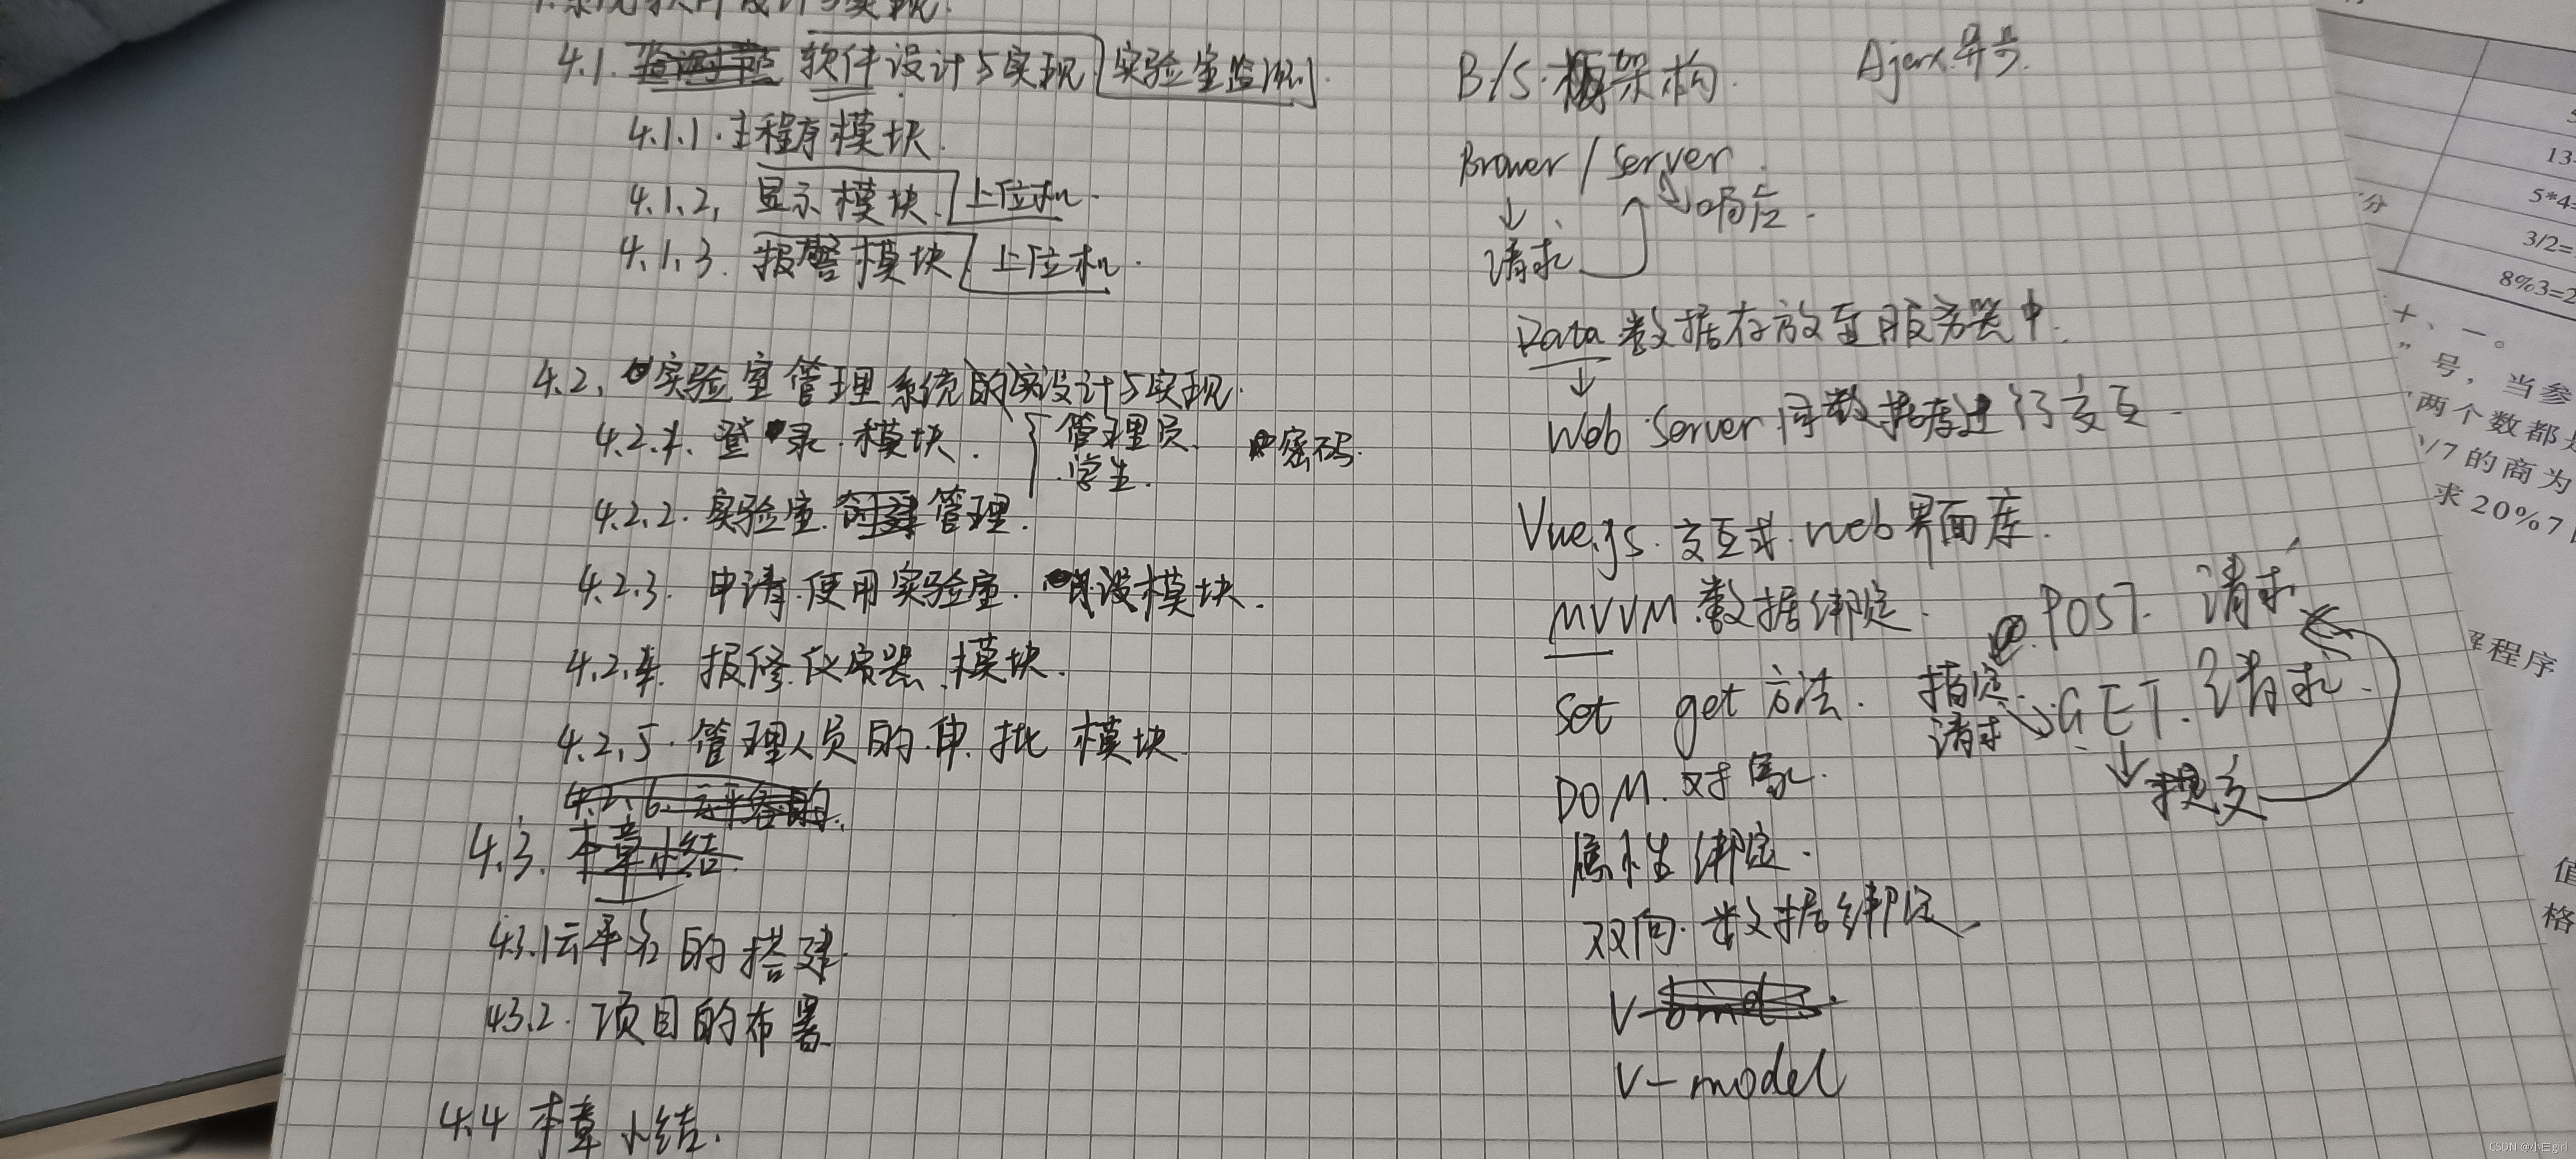 4.系统软件设计与实现.
4.1. 软件设计与实现 实验室监测.
4.1.1.主程序模块.
4.1.2. 显示模块. 上位机.
4.1.3. 报警模块 上位机.
4.2. 实验室管理系统的设计与实现.
4.2.1. 登录模块. 管理员. 密码.
学生.
4.2.2. 实验室 管理.
4.2.3. 申请使用实验室. 模块.
4.2.4. 报修仪器模块.
4.2.5. 管理人员的审批模块
4.2.6 云平台的.
4.3. 本章小结
4.3.1云平台的搭建.
4.3.2. 项目的布署
4.4 本章小结.
B/S.架构. Ajax异步.
Brower / Server.
响应.
请求
Data 数据存放至服务器中.
Web Server 同数据库进行交互
Vue.js.交互式.web界面库.
MVVM.数据绑定.
POST. 请求
set get方法. 指定
请求 GET. 请求.
DOM.对象. 提交
属性绑定.
双向.数据绑定
V-bind.
V-model
5*4=
3/2=
8%3=2
十、一。
”号，当参
两个数都是
/7的商为
求20%7
程序
值
格
CSDN @小白girl